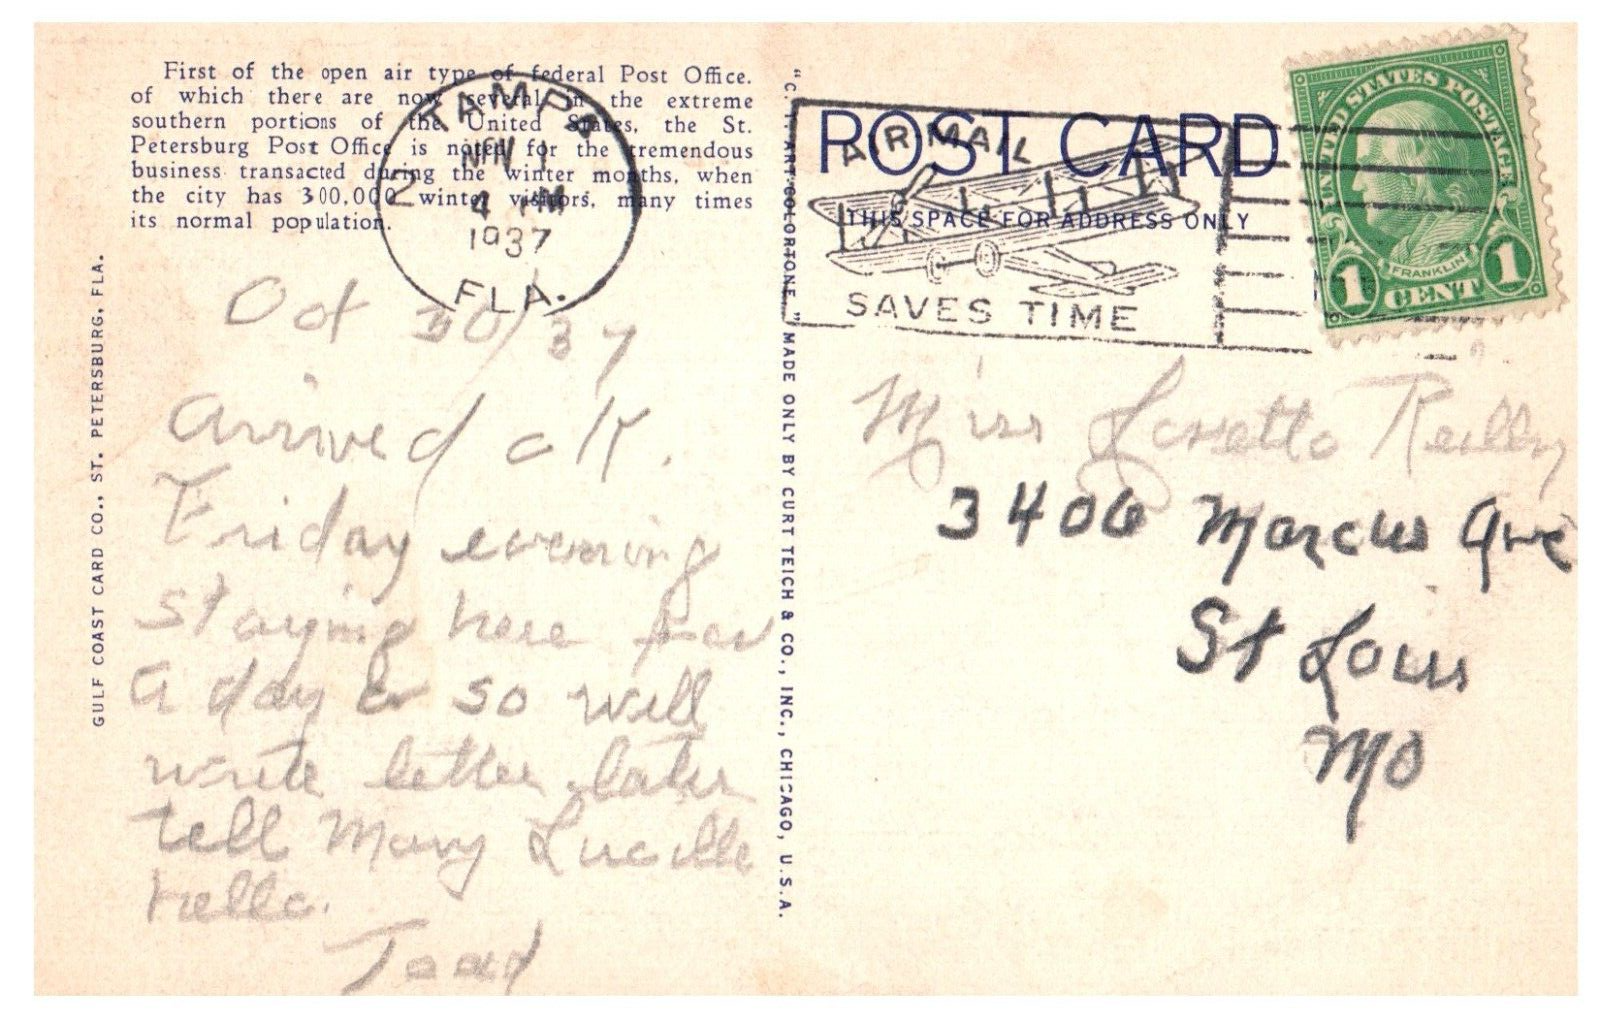 First of the open air type of federal Post Office.
of which there are now several in the extreme
southern portions of the United States, the St.
Petersburg Post Office is noted for the tremendous
business transacted during the winter months, when
the city has 300,000 winter visitors, many times
its normal population.
TAMPA
2
NOV 1
4 PM
1937
FLA.
GULF COAST CARD CO., ST. PETERSBURG, FLA.
Oct 30/37
Arrived ok.
Friday evening
staying here for
a day or so will
write letter later
tell Mary Lucille
hello.
Toad
"C. T. ART-COLORTONE" MADE ONLY BY CURT TEICH & CO., INC., CHICAGO, U.S.A.
POST CARD
THIS SPACE FOR ADDRESS ONLY
AIR MAIL
SAVES TIME
UNITED STATES POSTAGE
FRANKLIN
1 CENT 1
Miss Loretto Reilly
3406 Marcus Ave
St Louis
Mo